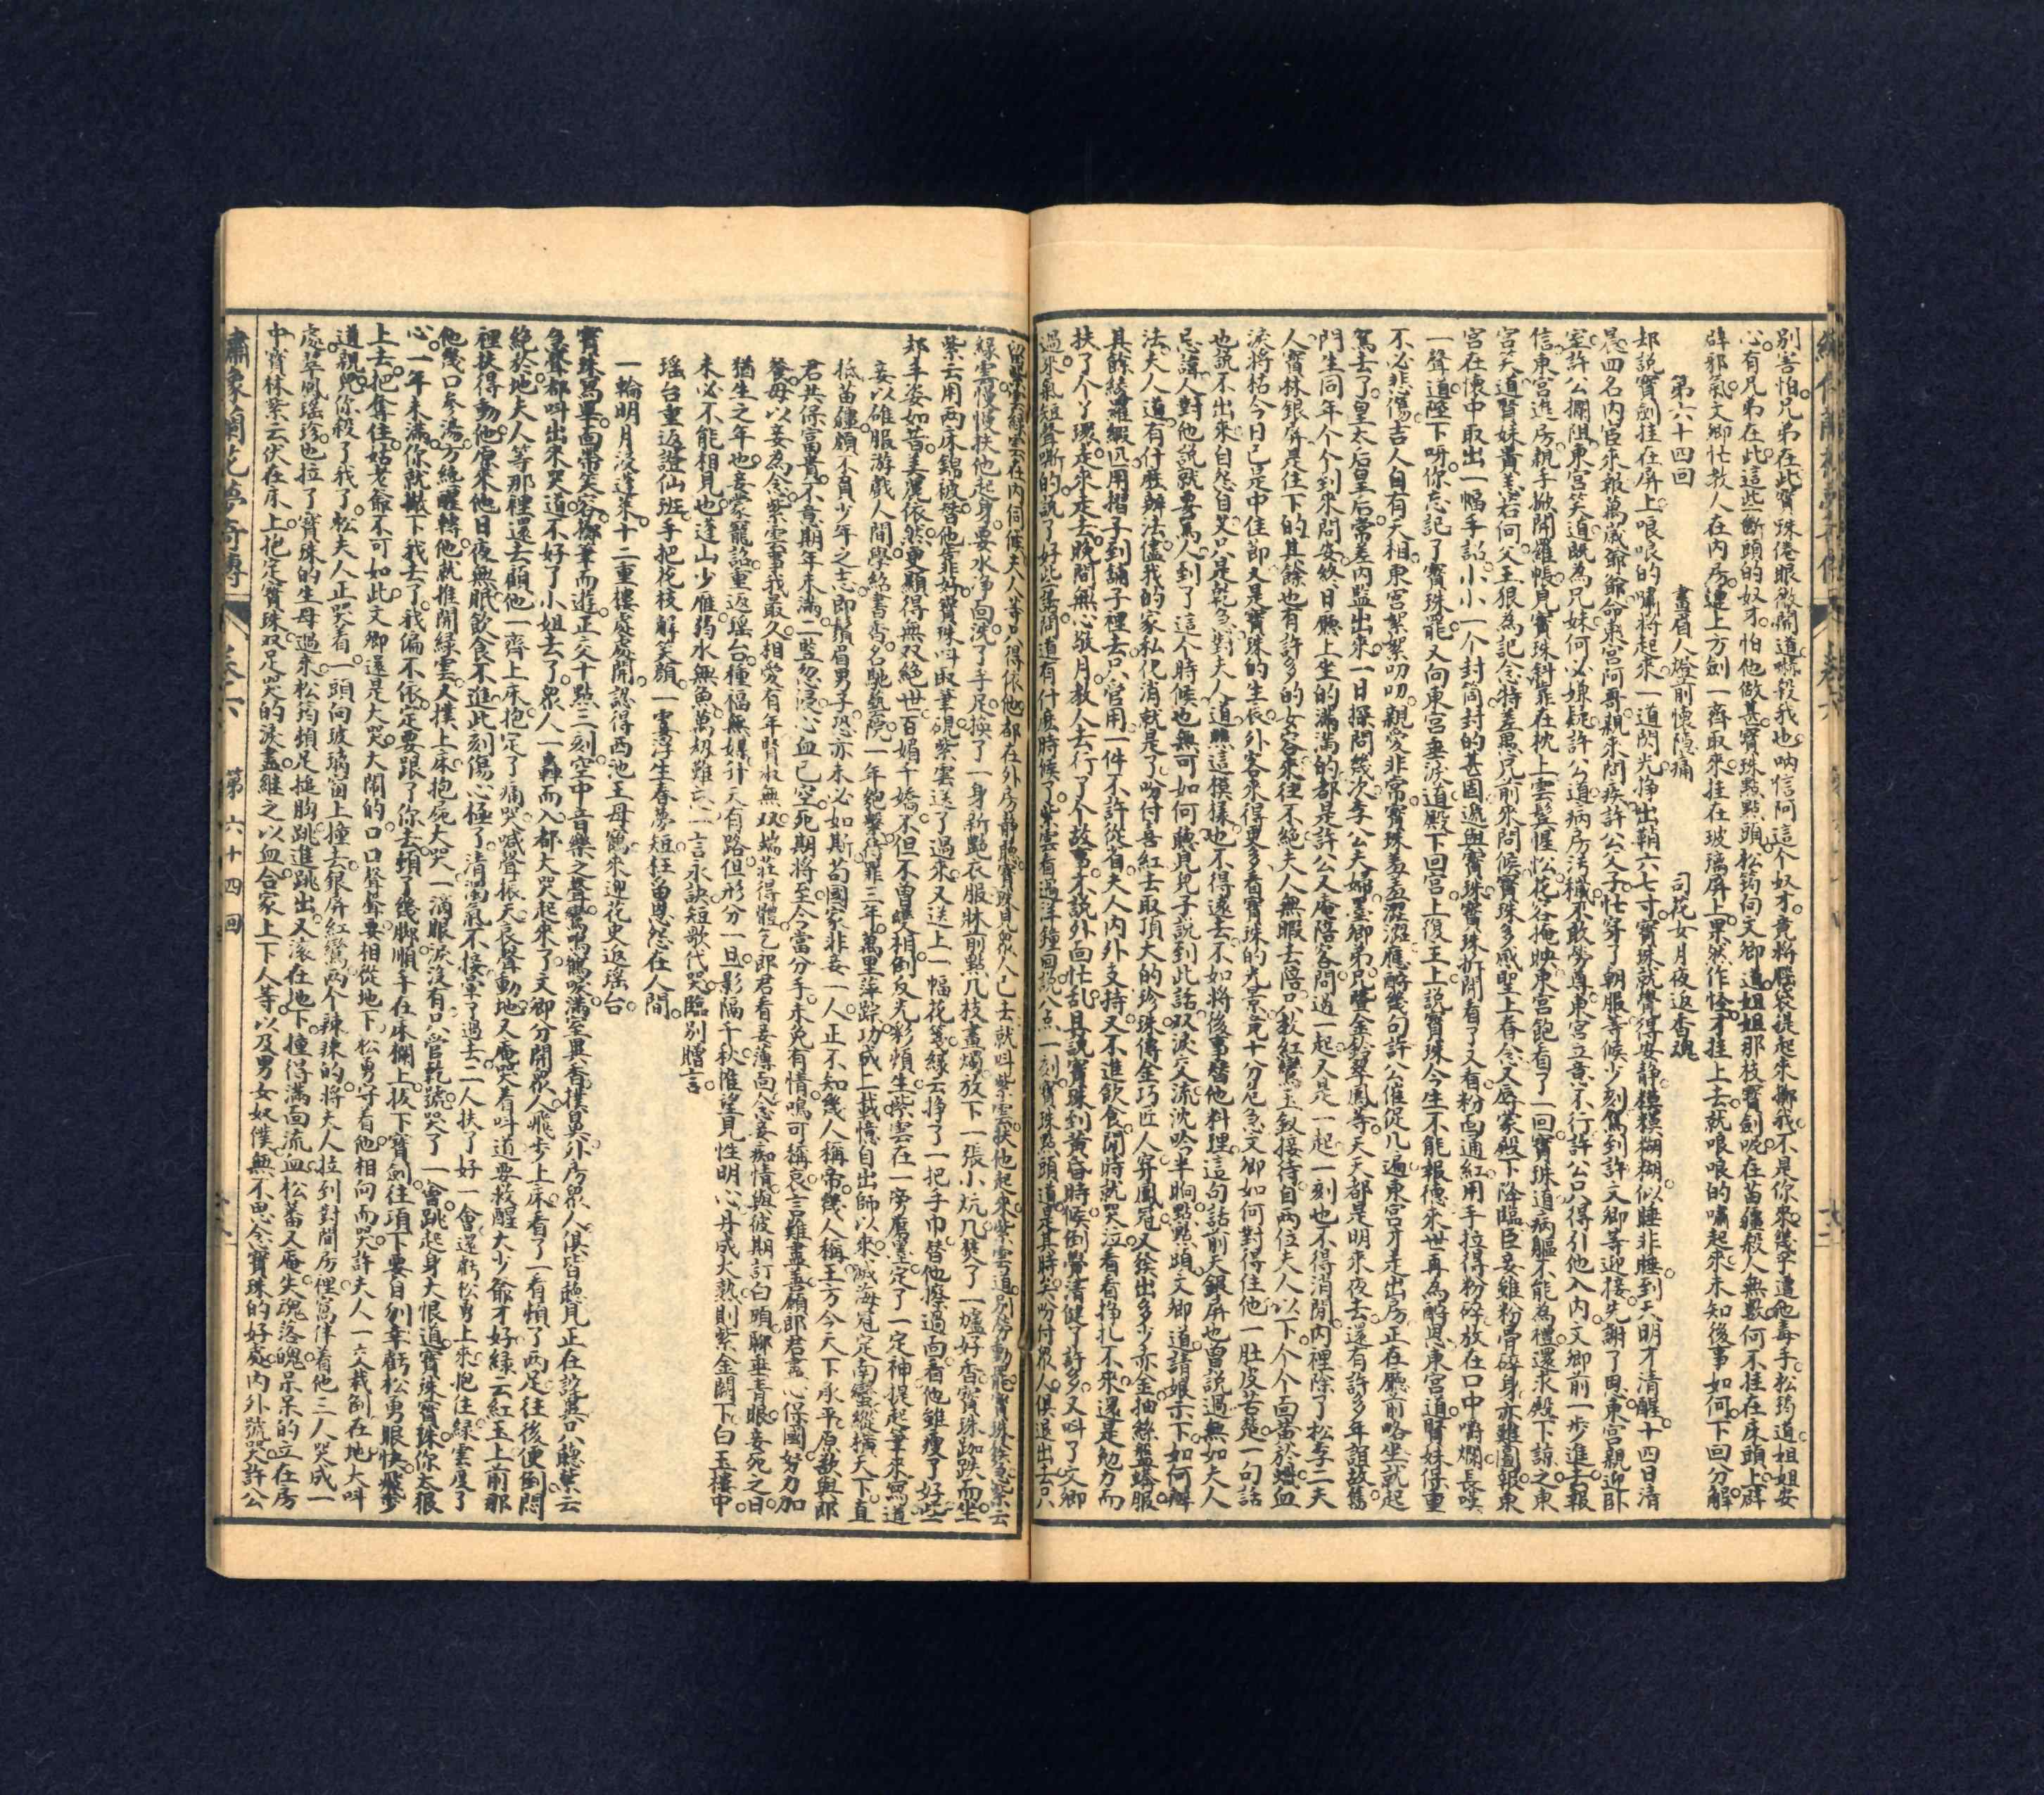 別害怕兄弟在此寶珠倦眼微開道嚇殺我也吶信阿這个奴才竟將腦袋提起來擲我不是你來幾乎遭他毒手松筠道姐姐安
心有兄弟在此這些斷頭的奴才怕他做甚寶珠點點頭松筠向文卿道姐姐那枝寶劍呢在苗疆殺人無數何不挂在床頭上辟
辟邪氣文卿忙教人在內房連上方劍一齊取來挂在玻璃屏上果然作怪才挂上去就哏哏的嘯起來未知後事如何下回分解
第六十四回 畫眉人燈前懷隱痛 司花女月夜返香魂
却說寶劍挂在屏上哏哏的嘯將起來一道閃光掙出鞘六七寸寶珠就覺得安靜模模糊糊似睡非睡到天明才清醒十四日清
晨四名內臣來報萬歲爺爺命東宮阿哥親來問疾許公父子忙穿了朝服等候少刻駕到許文卿等迎接先謝了恩東宮親迎卧
室許公攔阻東宮笑道既為兄妹何必嫌疑許公道病房污穢不敢勞尊東宮立意不行許公只得引他入內文卿前一步進去報
信東宮進房親手掀開羅帳見寶珠斜靠在枕上雲髮惺忪花容掩映東宮飽看了一回寶珠道病軀不能為禮還求殿下諒之東
宮笑道賢妹貴恙若何父王狠為記念特差愚兄前來問候寶珠多感聖上眷念又辱蒙殿下降臨臣妾雖粉骨碎身亦難圖報東
宮在懷中取出一幅手詔小小一个封筒封的甚固遞與寶珠寶珠拆開看了又看粉面通紅用手拉得粉碎放在口中嚼爛長嘆
一聲道陛下呀你忘記了寶珠罷又向東宮垂淚道殿下回宮上復王上說寶珠今生不能報德來世再為酬恩東宮道賢妹得重
不必悲傷吉人自有天相東宮絮絮叨叨親愛非常寶珠羞羞澀澀應酬幾句許公催促几遍東宮才走出房正在廳前略坐就起
駕去了皇太后皇后常差內監出來一日探問幾次李公夫婦墨卿弟兄暨金鈴翠鳳等天天都是明來夜去還有許多年誼故舊
門生同年个个到來問安終日廳上坐的滿滿的都是許公又庵陪客問過一起又是一起一刻也不得消閒內裡除了松李二夫
人寶林銀屏是住下的其餘也有許多的女客來往不絕夫人無暇去陪只教紅鸞玉釵接待自兩位夫人以下个个面黃於蠟血
淚將枯今日已是中佳節又是寶珠的生辰外客來得更多看寶珠的光景竟十分危急文卿如何對得住他一肚皮苦楚一句話
也說不出來自怨自艾只是乾急對夫人道照這模樣也不得遠去不如將後事替他料理這句話前天銀屏也曾說過無如夫人
忌諱人對他說就要罵人到了這个時候也無可如何聽見兒子說到此話双淚交流沈吟半晌點點頭文卿道請娘示下如何辦
法夫人道有什麼辦法儘我的家私化消就是了吩付喜紅去取頂大的珍珠傳金巧匠人穿鳳冠又發出多少赤金抽絲盤蟒服
其餘綾羅緞匹用摺子到鋪子裡去只管用一件不許從省夫人內外支持又不進飲食閒時就哭泣看看掙扎不來還是勉力而
扶了个了環走來走去晚間無心敬月教人去行了个故事才說外面忙乱且說寶珠到黃昏時候倒覺清健了許多又叫了文卿
過來氣短聲嘶的說了好些舊問道有什麼時候了紫雲看過洋鐘回說八点一刻寶珠點頭道是其時矣吩付眾人俱退出去只
留紫雲綠雲在內伺候夫人等只得依他都在外房靜聽寶珠見眾人已去就叫紫雲扶他起來紫雲道別勞動罷寶珠發急紫云
綠雲慢慢扶他起身要水淨面洗了手足換了一身新艷衣服牀前點几枝畫燭放下一張小炕几焚了一爐好香寶珠跏趺而坐
紫云用兩床錦被替他靠好寶珠叫取筆硯紫雲送了過來又送上一幅花箋綠云掙了一把手巾替他擦過面看他雖瘦了好些
却丰姿如昔美麗依然更顯得無双絕世百媚千嬌不但不曾變相倒反光彩煩生紫雲在一旁磨墨定了一定神提起筆來寫道
妾以雄服游戲人間學紹書香名馳藝院一年鮑繫待罪三年萬里萍踪功成二載憶自出師以來滅海冠定南蠻縱橫天下直
抵苗疆頗不負少年之志即鬚眉男子恐亦未必如斯苟國家非妾一人正不知幾人稱帝幾人稱王方今天下承平原欲與郎
君共保富貴不意期年未滿二豎忽浸心血已空死期將至今當分手未免有情鳴可稱哀言難盡善願郎君盡心保國努力加
餐毋以妾為念紫雲事我最久相愛有年賢淑無双端荘得體乞郎君看妾薄面念妾痴情與彼期訂白頭聊垂青眼妾死之日
猶生之年也妾蒙寵詔重返瑶台種福無媒升天有路但形分一旦影隔千秋惟望見性明心丹成火熟則紫金闕下白玉樓中
未必不能相見也蓬山少雁弱水無魚萬劫難忘一言永訣短歌代哭臨別贈言
瑶台重返證仙班手把花枝解笑顏一霎浮生春夢短狂留恩怨在人間
一輪明月浸蓬萊十二重樓處處開認得西池王母鶴來迎花史返瑶台
寶珠寫畢面帶笑容擲筆而逝正交十點三刻空中音樂之聲鸞鳴鶴唳滿室異香撲鼻外房眾人俱皆聽見正在設異只聽紫云
急聲都叫出來哭道不好了小姐去了眾人一轟而入都大哭起來了文卿分開眾人飛步上床看了一看頓了兩足往後便倒悶
絕於地夫人等那裡還去顧他一齊上床抱定了痛哭喊聲振天哀聲動地又庵哭着叫道要救醒大少爺才好綠云紅玉上前那
裡扶得動他原來他日夜無眠飲食不進此刻傷心極了清濁氣不接暈了過去二人扶了好一會還虧松勇上來抱住綠雲度了
他幾口參湯方纔醒轉他就推開綠雲又撲上床抱屍大哭一滴眼淚沒有只管乾號哭了一會跳起身大恨道寶珠寶珠你太狠
心一年未滿你就撇下我去了我偏不依定要跟了你去頓了幾脚順手在床欄上拔下寶劍往項下要自刎幸虧松勇眼快飛步
上去把奪住姑老爺不可如此文卿還是大哭大鬧的口口聲聲要相從地下松勇守着他相向而哭許夫人一交栽倒在地大叫
道親兒你殺了我了松夫人正哭着一頭向玻璃窗上撞去銀屏紅鸞兩个辣辣的將夫人拉到對間房裡寫伴着他三人哭成一
處翠鳳瑶珍也拉了寶珠的生母過來松筠頓足搥胸跳進跳出又滾在地下撞得滿面流血松蕃又庵失魂落魄呆呆的立在房
中寶林紫云伏在床上抱定寶珠双足哭的淚盡繼之以血合家上下人等以及男女奴僕無不思念寶珠的好處內外號哭許公
繡像蘭花夢奇傳 卷六 第六十四回